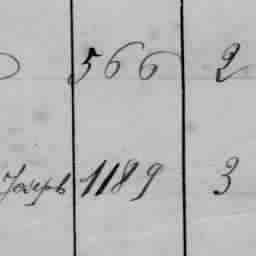 566 2
Joseph 1189 3